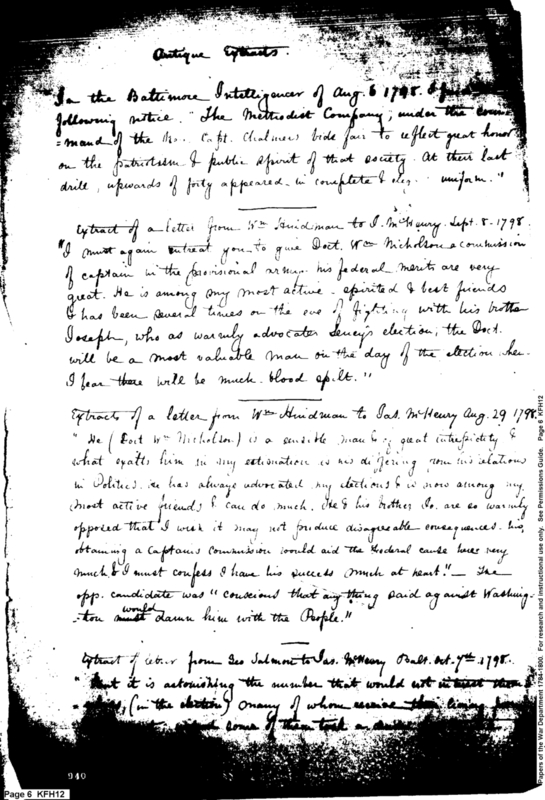 Antique Extracts.
In the Baltimore Intelligencer of Aug. 6 1798. I find
following notice. "The Methodist Company, under the com
=mand of the Rev. Capt. Chalmers bids fair to reflect great honor
on the patriotism & public spirit of that society. At their last
drill, upwards of forty appeared in complete & uniform."
Extract of a letter from Wm Hindman to J. McHenry. Sept. 8. 1798.
"I must again entreat you to give Doct. Wm Nicholson a commission
of captain in the provisional army. his federal merits are very
great. He is among my most active - spirited & best friends
& has been several times on the eve of fighting with his brother
Joseph, who as warmly advocates Seney's election; the Doct.
will be a most valuable man on the day of the election when
I fear there will be much blood spilt."
Extracts of a letter from Wm Hindman to Jas. McHenry Aug. 29 1798.
"He (Doct Wm Nicholson) is a sensible man & of great intrepidity &
what exalts him in my estimation is his differing from his relations
in Politics. he has always advocated my elections & is now among my
most active friends & can do much. He & his brother Jo. are so warmly
opposed that I wish it may not produce disagreable consequences. his
obtaining a Captains Commission would aid the Federal cause here very
much, & I must confess I have his success much at heart." — The
opp. candidate was "conscious that any thing said against Washing-
-ton would damn him with the People."
Extract of letter from Geo Salmon to Jas. McHenry Balt. Oct. 7th 1798.
"But it is astonishing the number that would not interest them
(in the election) many of whom receive their living from
some of them took a
940
Page 6 KFH12
Papers of the War Department 1784-1800. For research and instructional use only. See Permissions Guide. Page 6 KFH12